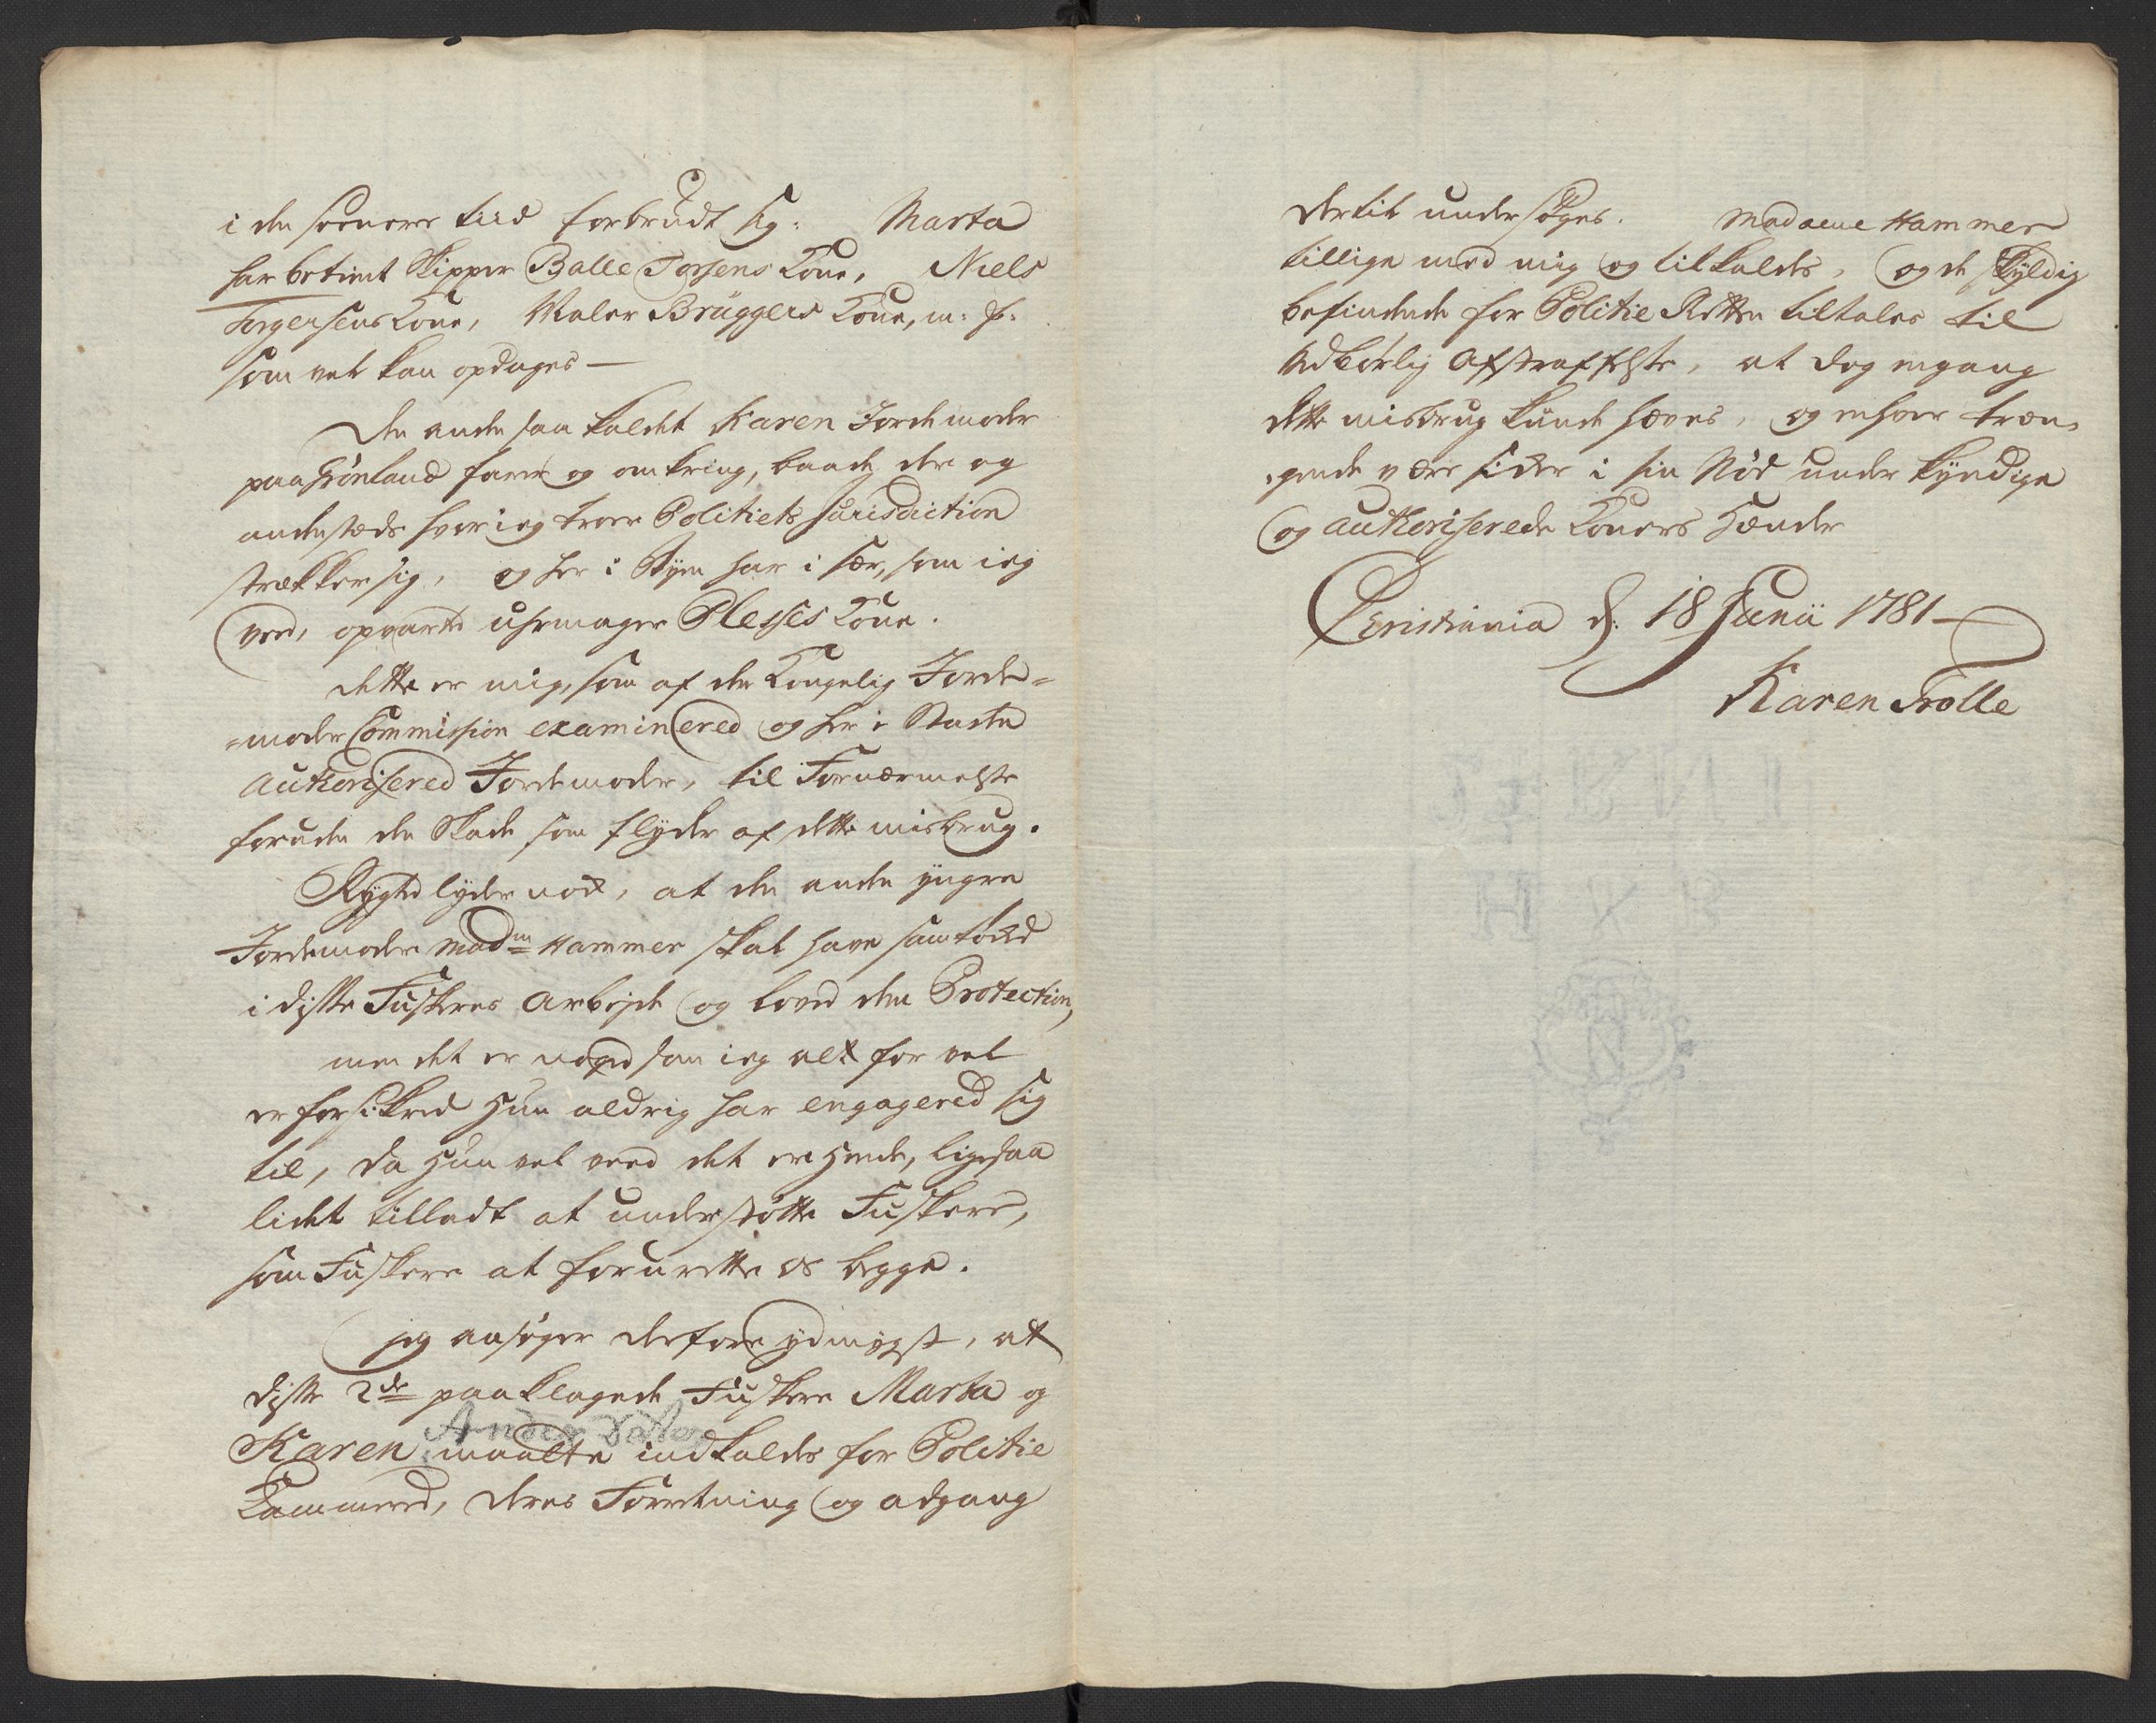 i den seenere tiid forbrudt sig: Marta
har betient Skipper Balle Torsens Kone, Niels
Torgersens Kone, Maler Brüggers Kone, m: fl:
som vel kan opdages —
Den anden saa kaldet Karen Jordemoder
paa Grönland farer og omkring, baade der og
andenstæds hvor ieg troer Politiets Jurisdiction
strækker sig, og her i Byen har i sær, som ieg
veed, opvarted uhrmager Plesses Kone.
Dette er mig, som af den Kongelig Jorde=
=moder Commission examinered og her i Staden
Authorisered Jordemoder, til Fornærmelse
foruden den Skade som flyder af dette misbrug.
Rygted lyder nok, at den anden yngre
Jordemoder Madm Hammer skal have samtökd
i disse Fuskeres Arbejde og loved dem Protection,
men det er noged som ieg alt for vel
er forsikred hun aldrig har engagered sig
til, da hun vel veed det er hende, ligesaa
lidet tilladt at understötte Fuskere,
som Fuskere at forurette os begge.
jeg ansöger derfore ydmygst, at
disse 2de paaklagede Fuskere Marta og
Karen maatte indkaldes for Politie
Kammered, deres Forretning og adgang
dertil undersöges. Madame Hammer
tillige med mig og tilkaldes, og de skyldig
befindende for Politie Retten tiltales til
Udbörlig Afstraffelse, at dog engang
dette misbrug kunde hæves, og enhver træn=
=gende være sikker i sin Nöd under kyndige
og authoriserede Koners Hænder
Christiania d: 18 Junii 1781 —
Karen Trolle